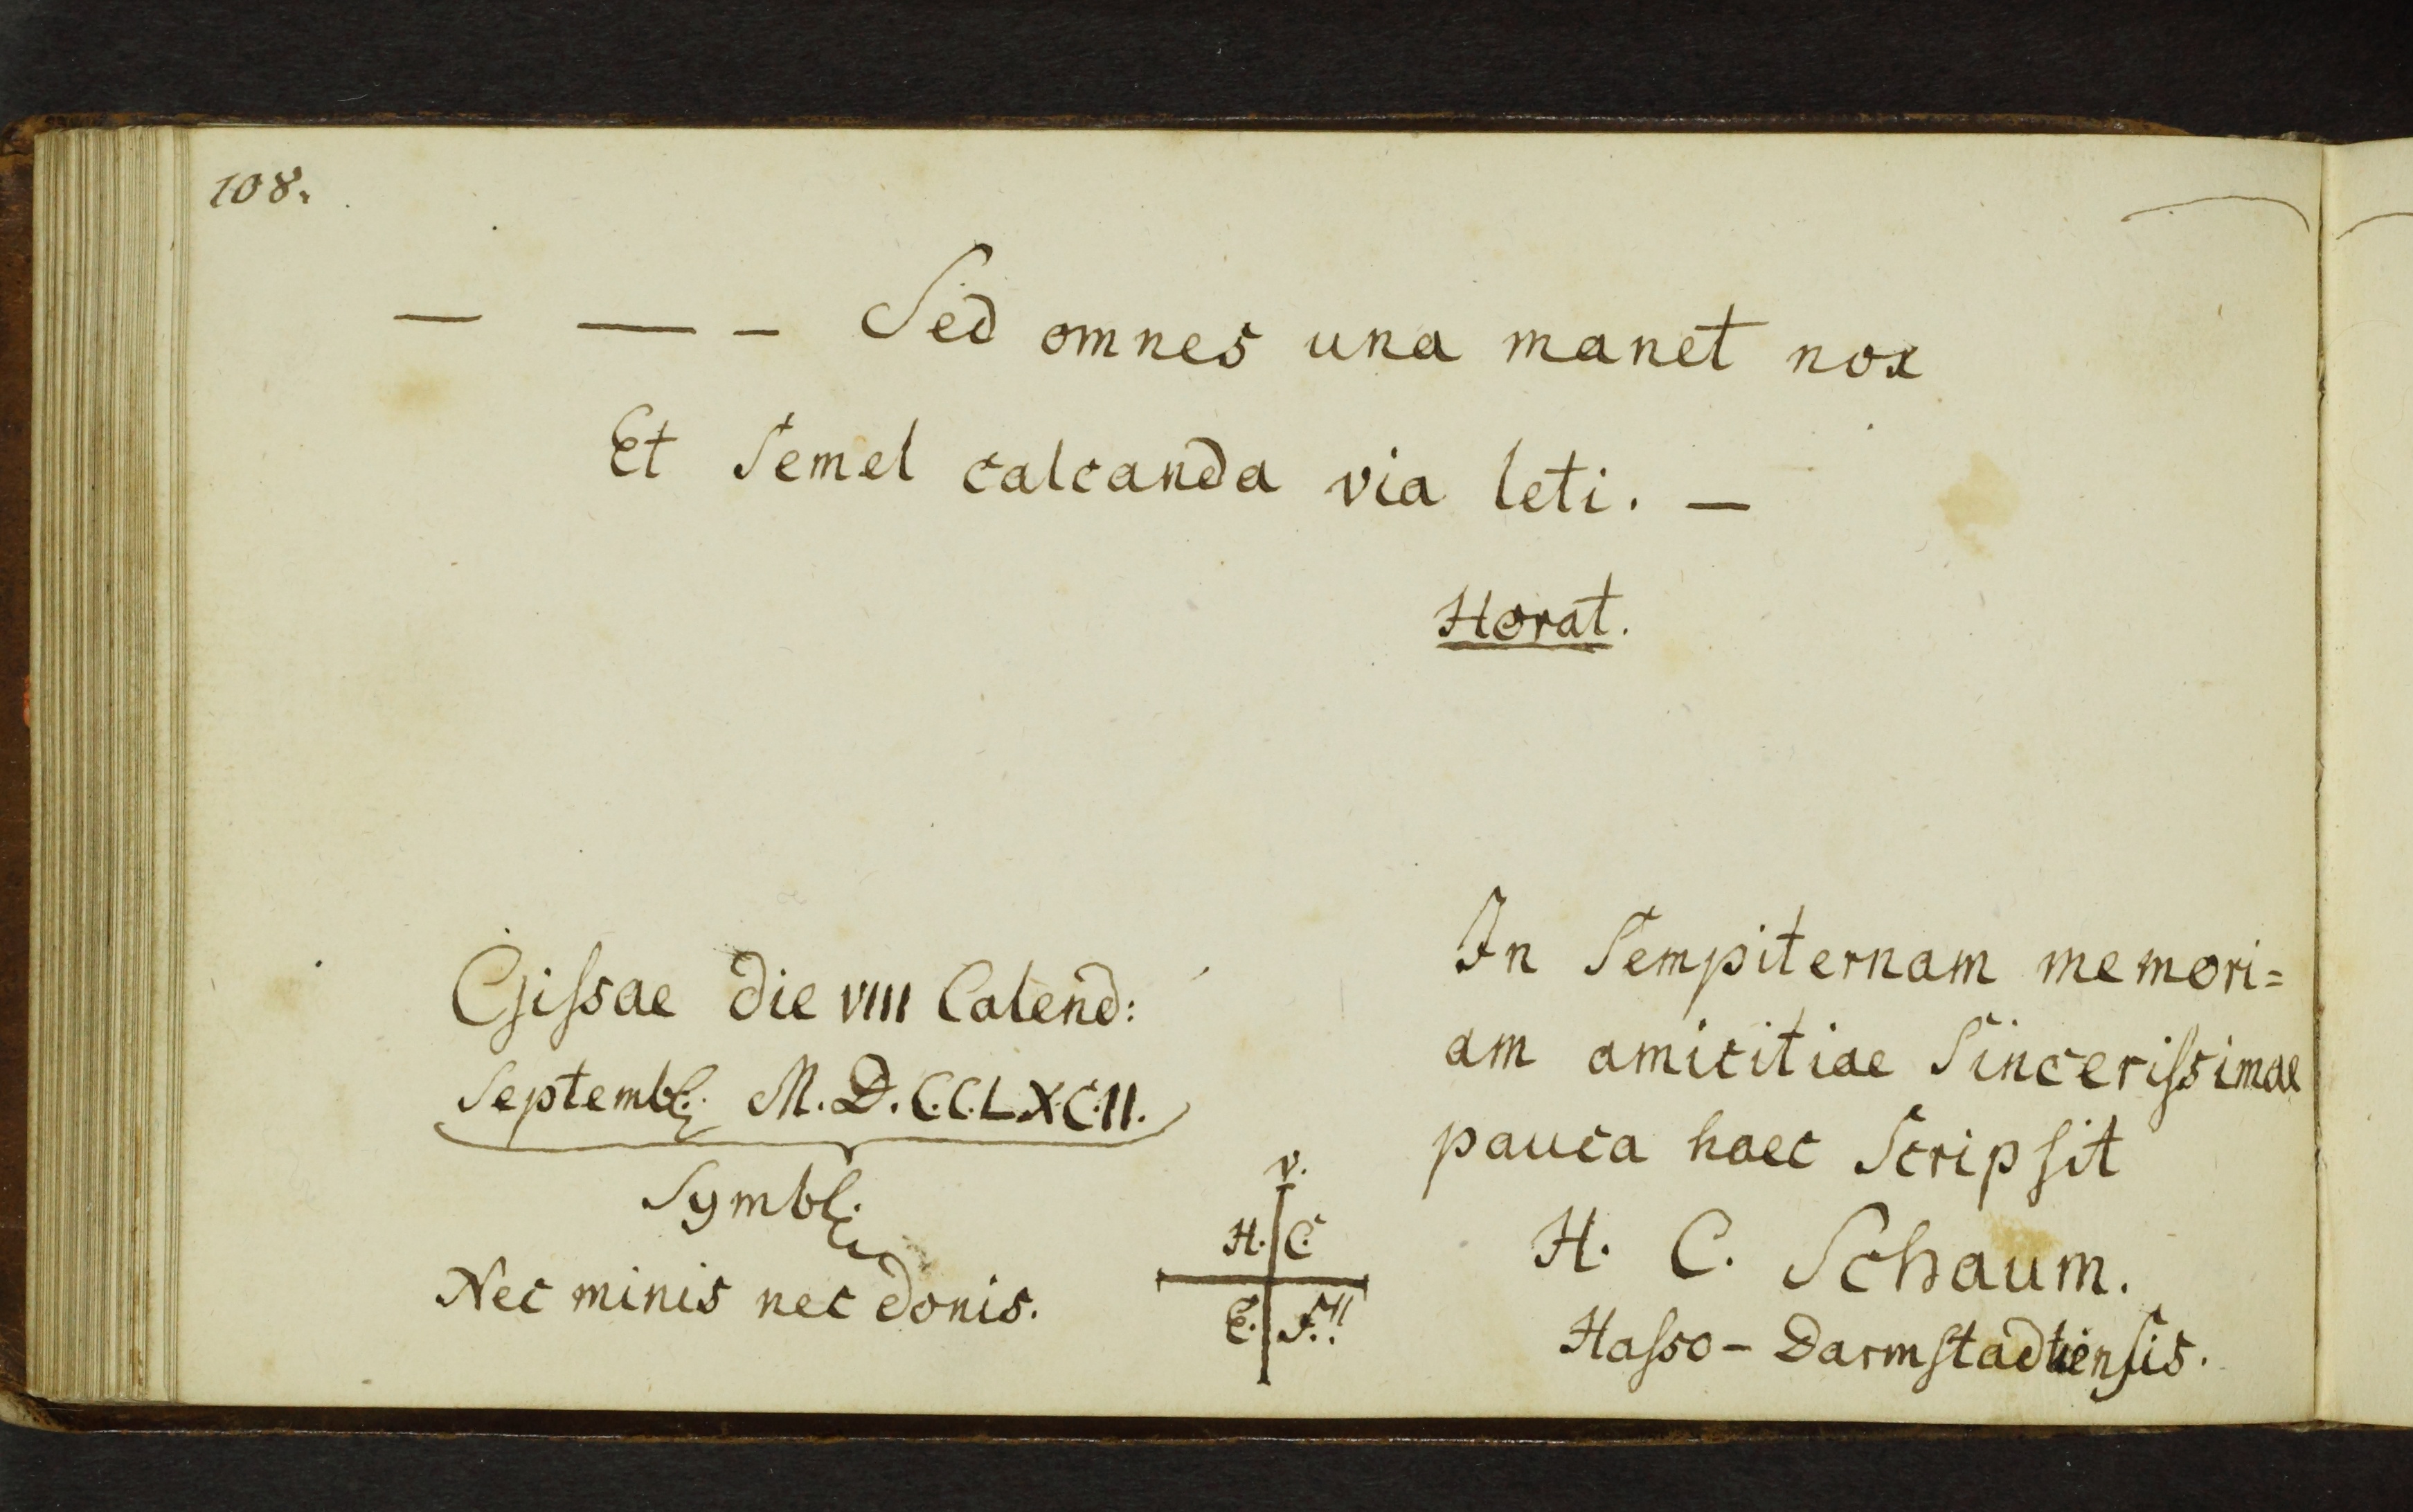 108.
— — – Sed omnes una manet nox
Et Semel calcanda via leti. —
Horat.
Gissae die VIII Calend:
Septembr: M.D.C.C.L.X.C.II.
Symbl:
Nec minis nec donis.
v.
H. C.
E. F.!!
In Sempiternam memori=
am amicitiae Sincerissimae
pauca haec Scripsit
H. C. Schaum.
Hasso - Darmstadtiensis.